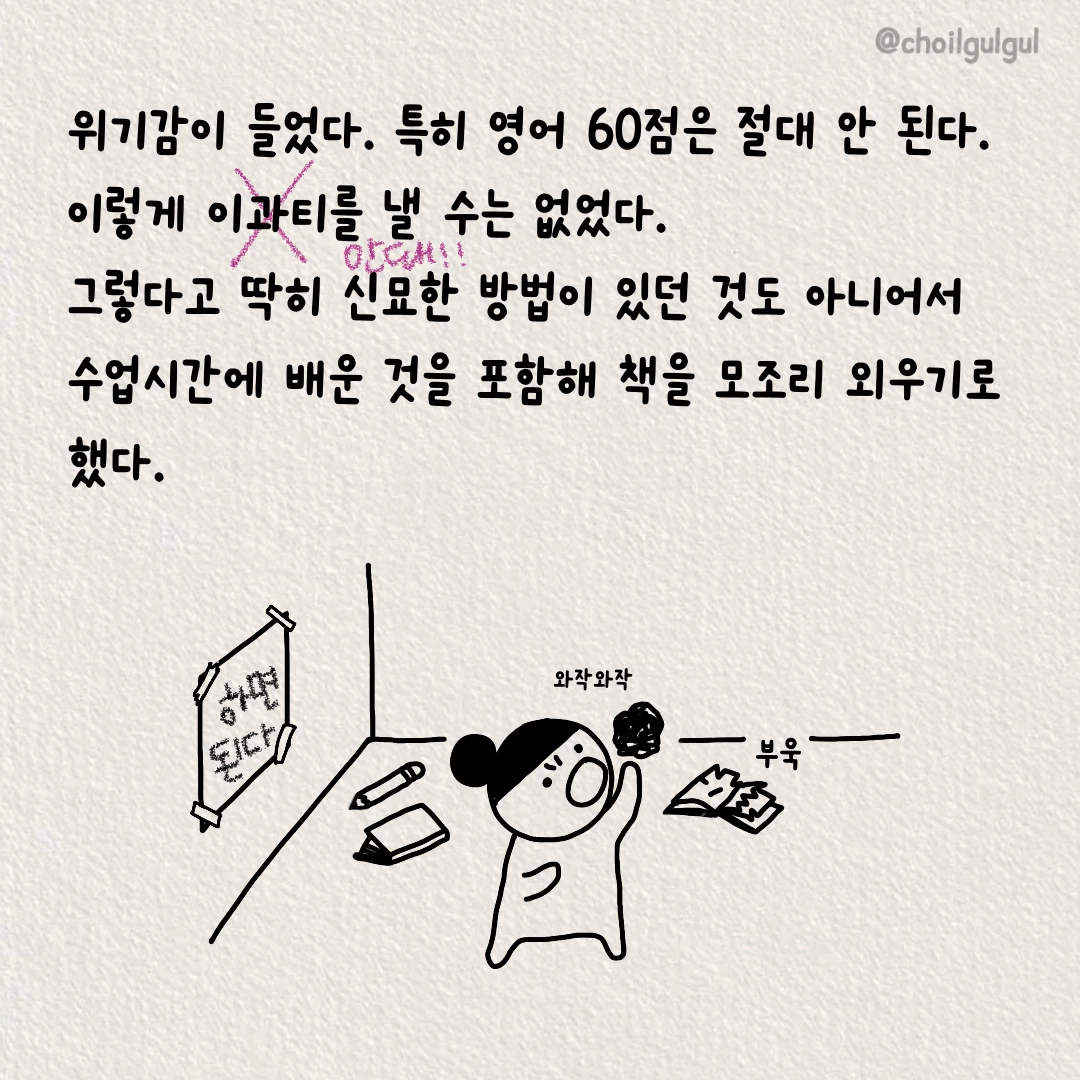 @choilgulgul
위기감이 들었다. 특히 영어 60점은 절대 안 된다.
이렇게 이과티를 낼 수는 없었다.
안대!!
그렇다고 딱히 신묘한 방법이 있던 것도 아니어서
수업시간에 배운 것을 포함해 책을 모조리 외우기로
했다.
하면
된다
와작와작
부욱